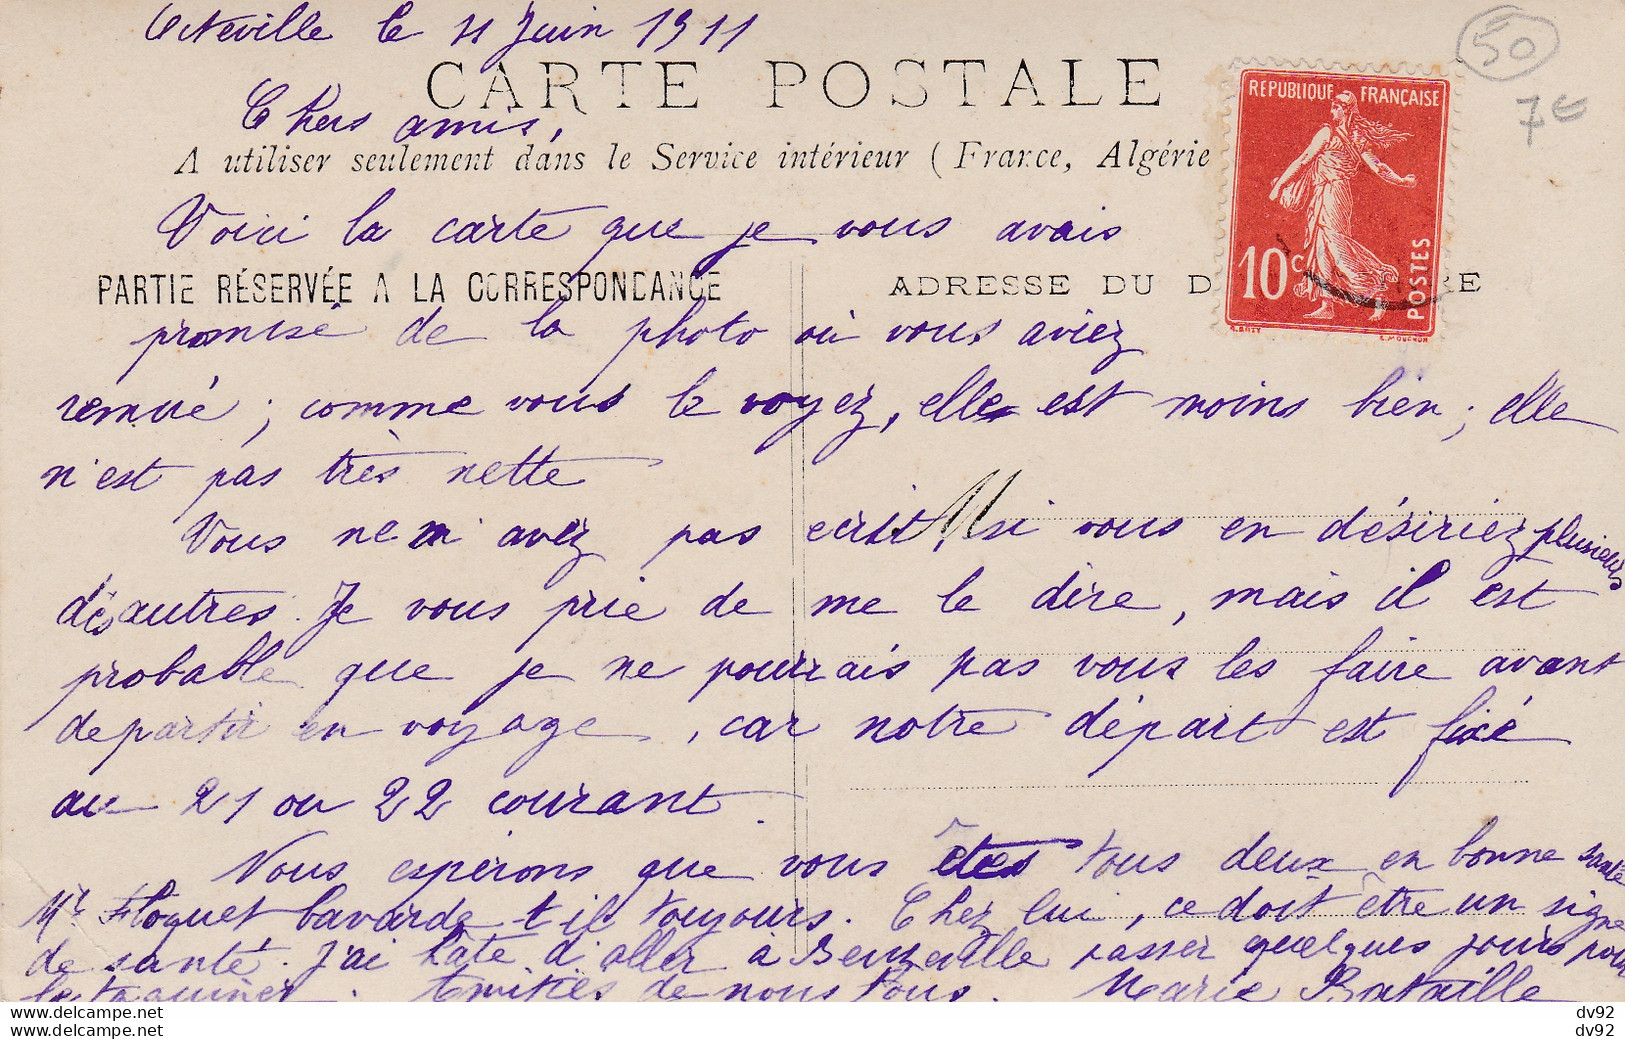 Octeville le 11 Juin 1911
50
CARTE POSTALE
RÉPUBLIQUE FRANÇAISE
7€
Chers amis,
A utiliser seulement dans le Service intérieur (France, Algérie
Voici la carte que je vous avais
10c
POSTES
PARTIE RÉSERVÉE A LA CORRESPONDANCE
ADRESSE DU D RE
promise de la photo où vous aviez
remué ; comme vous le voyez, elle est moins bien ; elle
n'est pas très nette
M
Vous ne m'avez pas écrit, si vous en désiriez plusieurs
des autres. Je vous prie de me le dire, mais il est
probable que je ne pourrais pas vous les faire avant
de partir en voyage, car notre départ est fixé
au 21 ou 22 courant.
Nous espérons que vous êtes tous deux en bonne santé
Mr Floquet bavarde-t-il toujours. Chez lui, ce doit être un signe
de santé. J'ai hâte d'aller à Benzeville passer quelques jours pour
le taquiner. Amitiés de nous tous. Marie Bataille
dv92
dv92